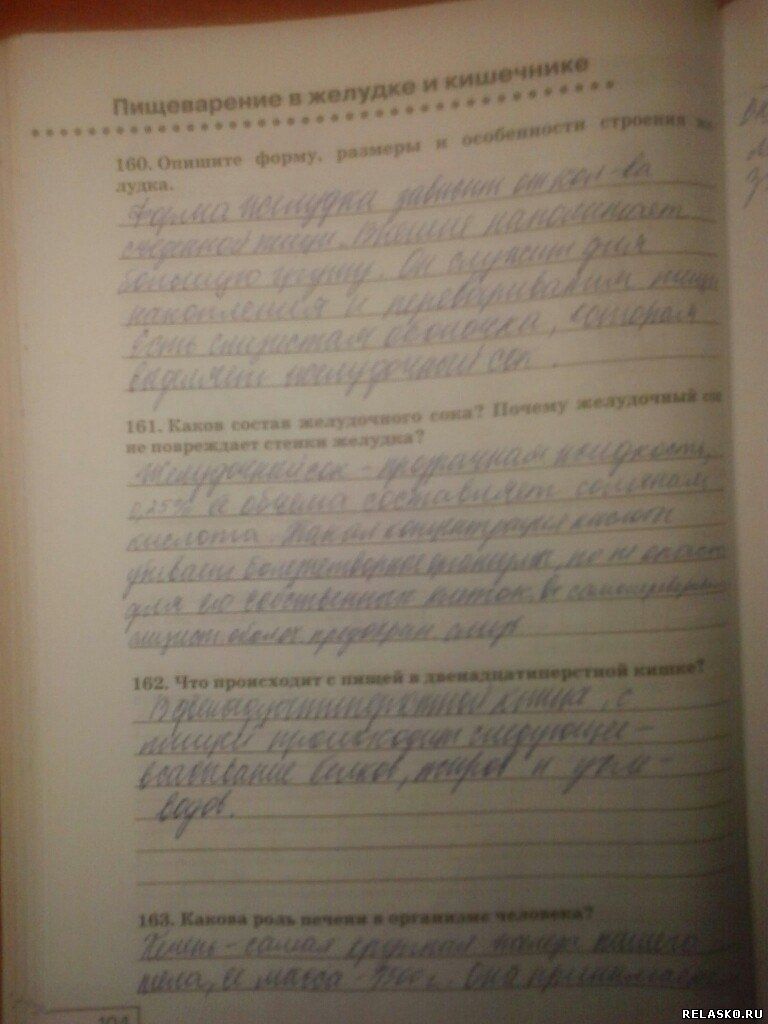 Пищеварение в желудке и кишечнике
160. Опишите форму, размеры и особенности строения
лудка.
Форма желудка зависит от кол-ва
съеденной пищи. Внешне напоминает
большую грушу. Он служит для
накопления и переваривания пищи
Есть слизистая оболочка, которая
выделяет желудочный сок.
161. Каков состав желудочного сока? Почему желудочный
не повреждает стенки желудка?
Желудочный сок - прозрачная жидкость,
0,25% а объема составляет соляная
кислота. Такая концентрация кислоты
убивает болезнетворное, но не опасна
для его собственных клеток.
162. Что происходит с пищей в двенадцатиперстной кишке?
В двенадцатиперстной кишке с
пищей происходит следующее -
всасывание белков, жиров и угле-
водов.
163. Какова роль печени в организме человека?
Печень - самая крупная железа нашего
тела, её масса 1500 г. Она
104
RELASKO.RU